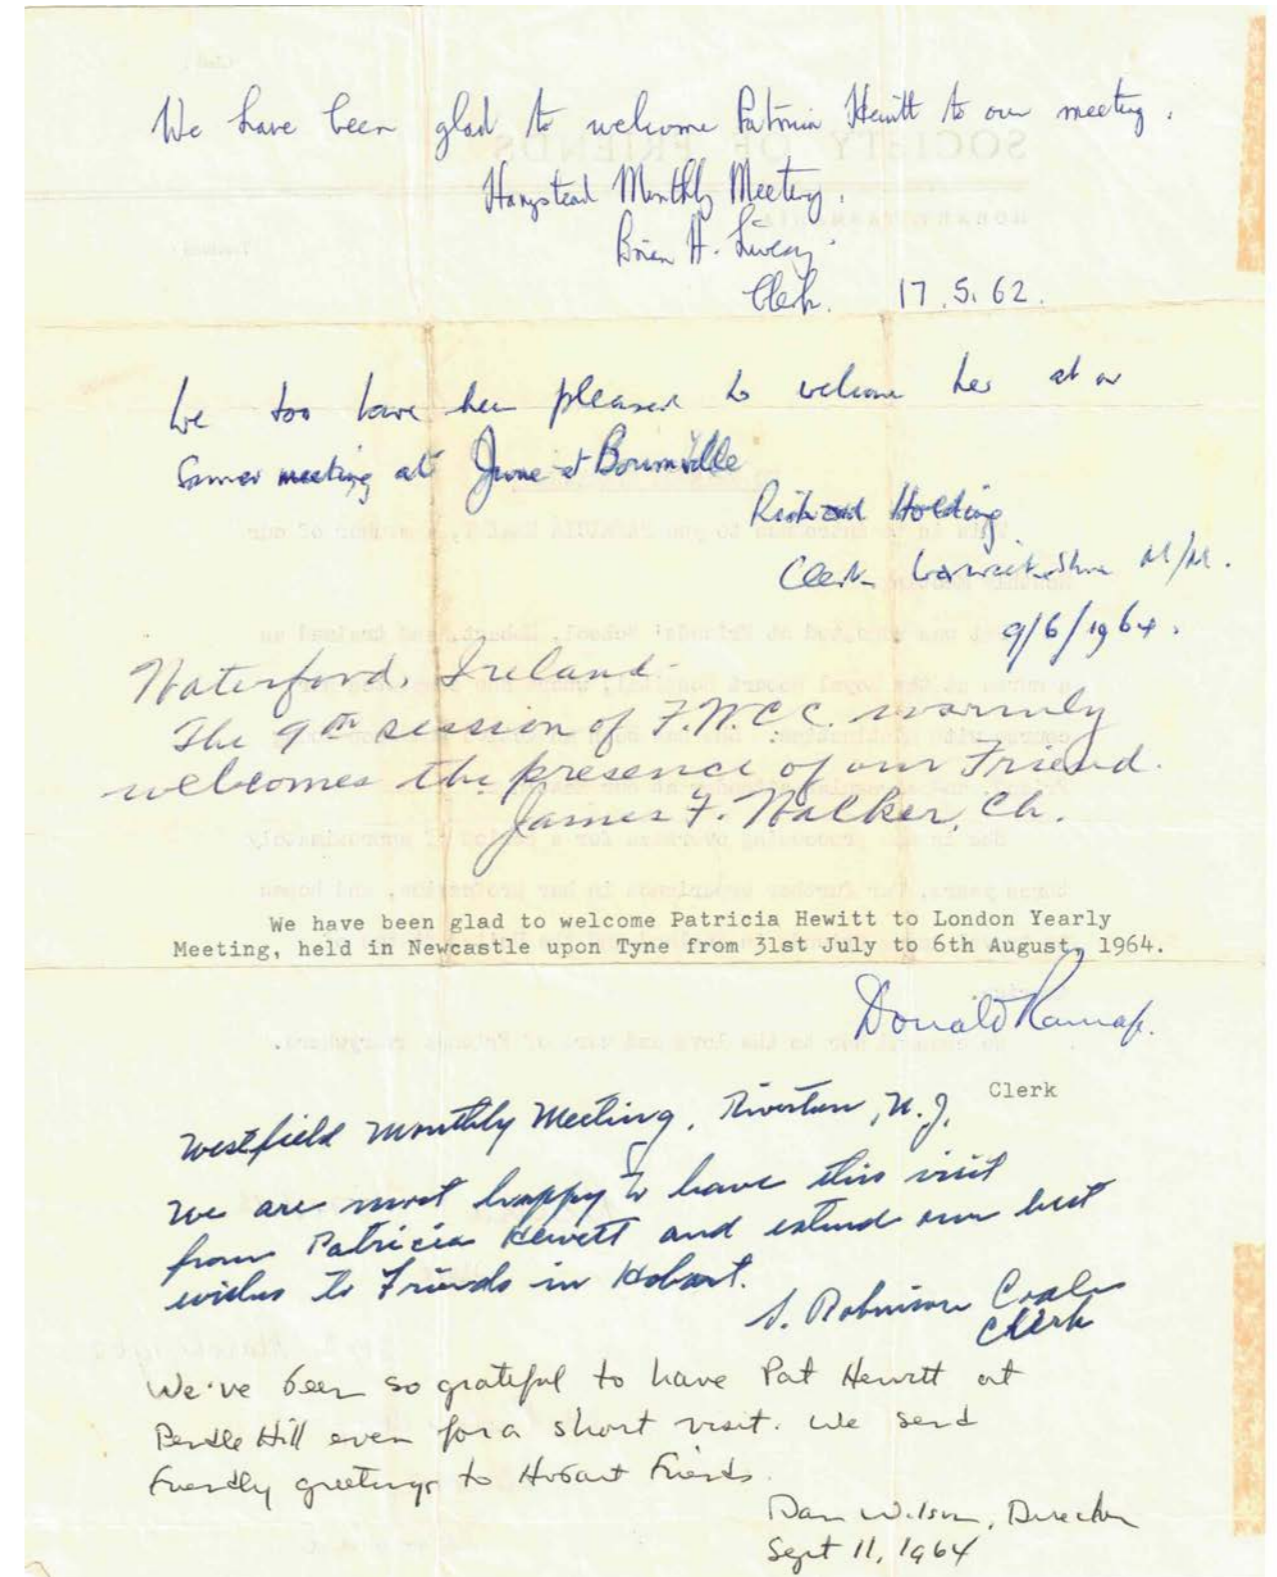 We have been glad to welcome Patricia Hewitt to our meeting.
Hampstead Monthly Meeting.
Brian H.
Clerk. 17.5.62.
We too have been pleased to welcome her at our
Summer meeting at June at Bournville
Richard Holding
Clerk Warwickshire M/M.
9/6/1964.
Waterford, Ireland.
The 9th session of F.W.C.C. warmly
welcomes the presence of our Friend.
James F. Walker, Ch.
We have been glad to welcome Patricia Hewitt to London Yearly
Meeting, held in Newcastle upon Tyne from 31st July to 6th August, 1964.
Donald
Clerk
Westfield Monthly Meeting, Riverton, N.J.
We are most happy to have this visit
from Patricia Hewett and extend our best
wishes to Friends in Hobart.
S. Robinson Coale
Clerk
We've been so grateful to have Pat Hewitt at
Pendle Hill even for a short visit. We send
Friendly greetings to Hobart Friends.
Dan Wilson, Director
Sept 11, 1964